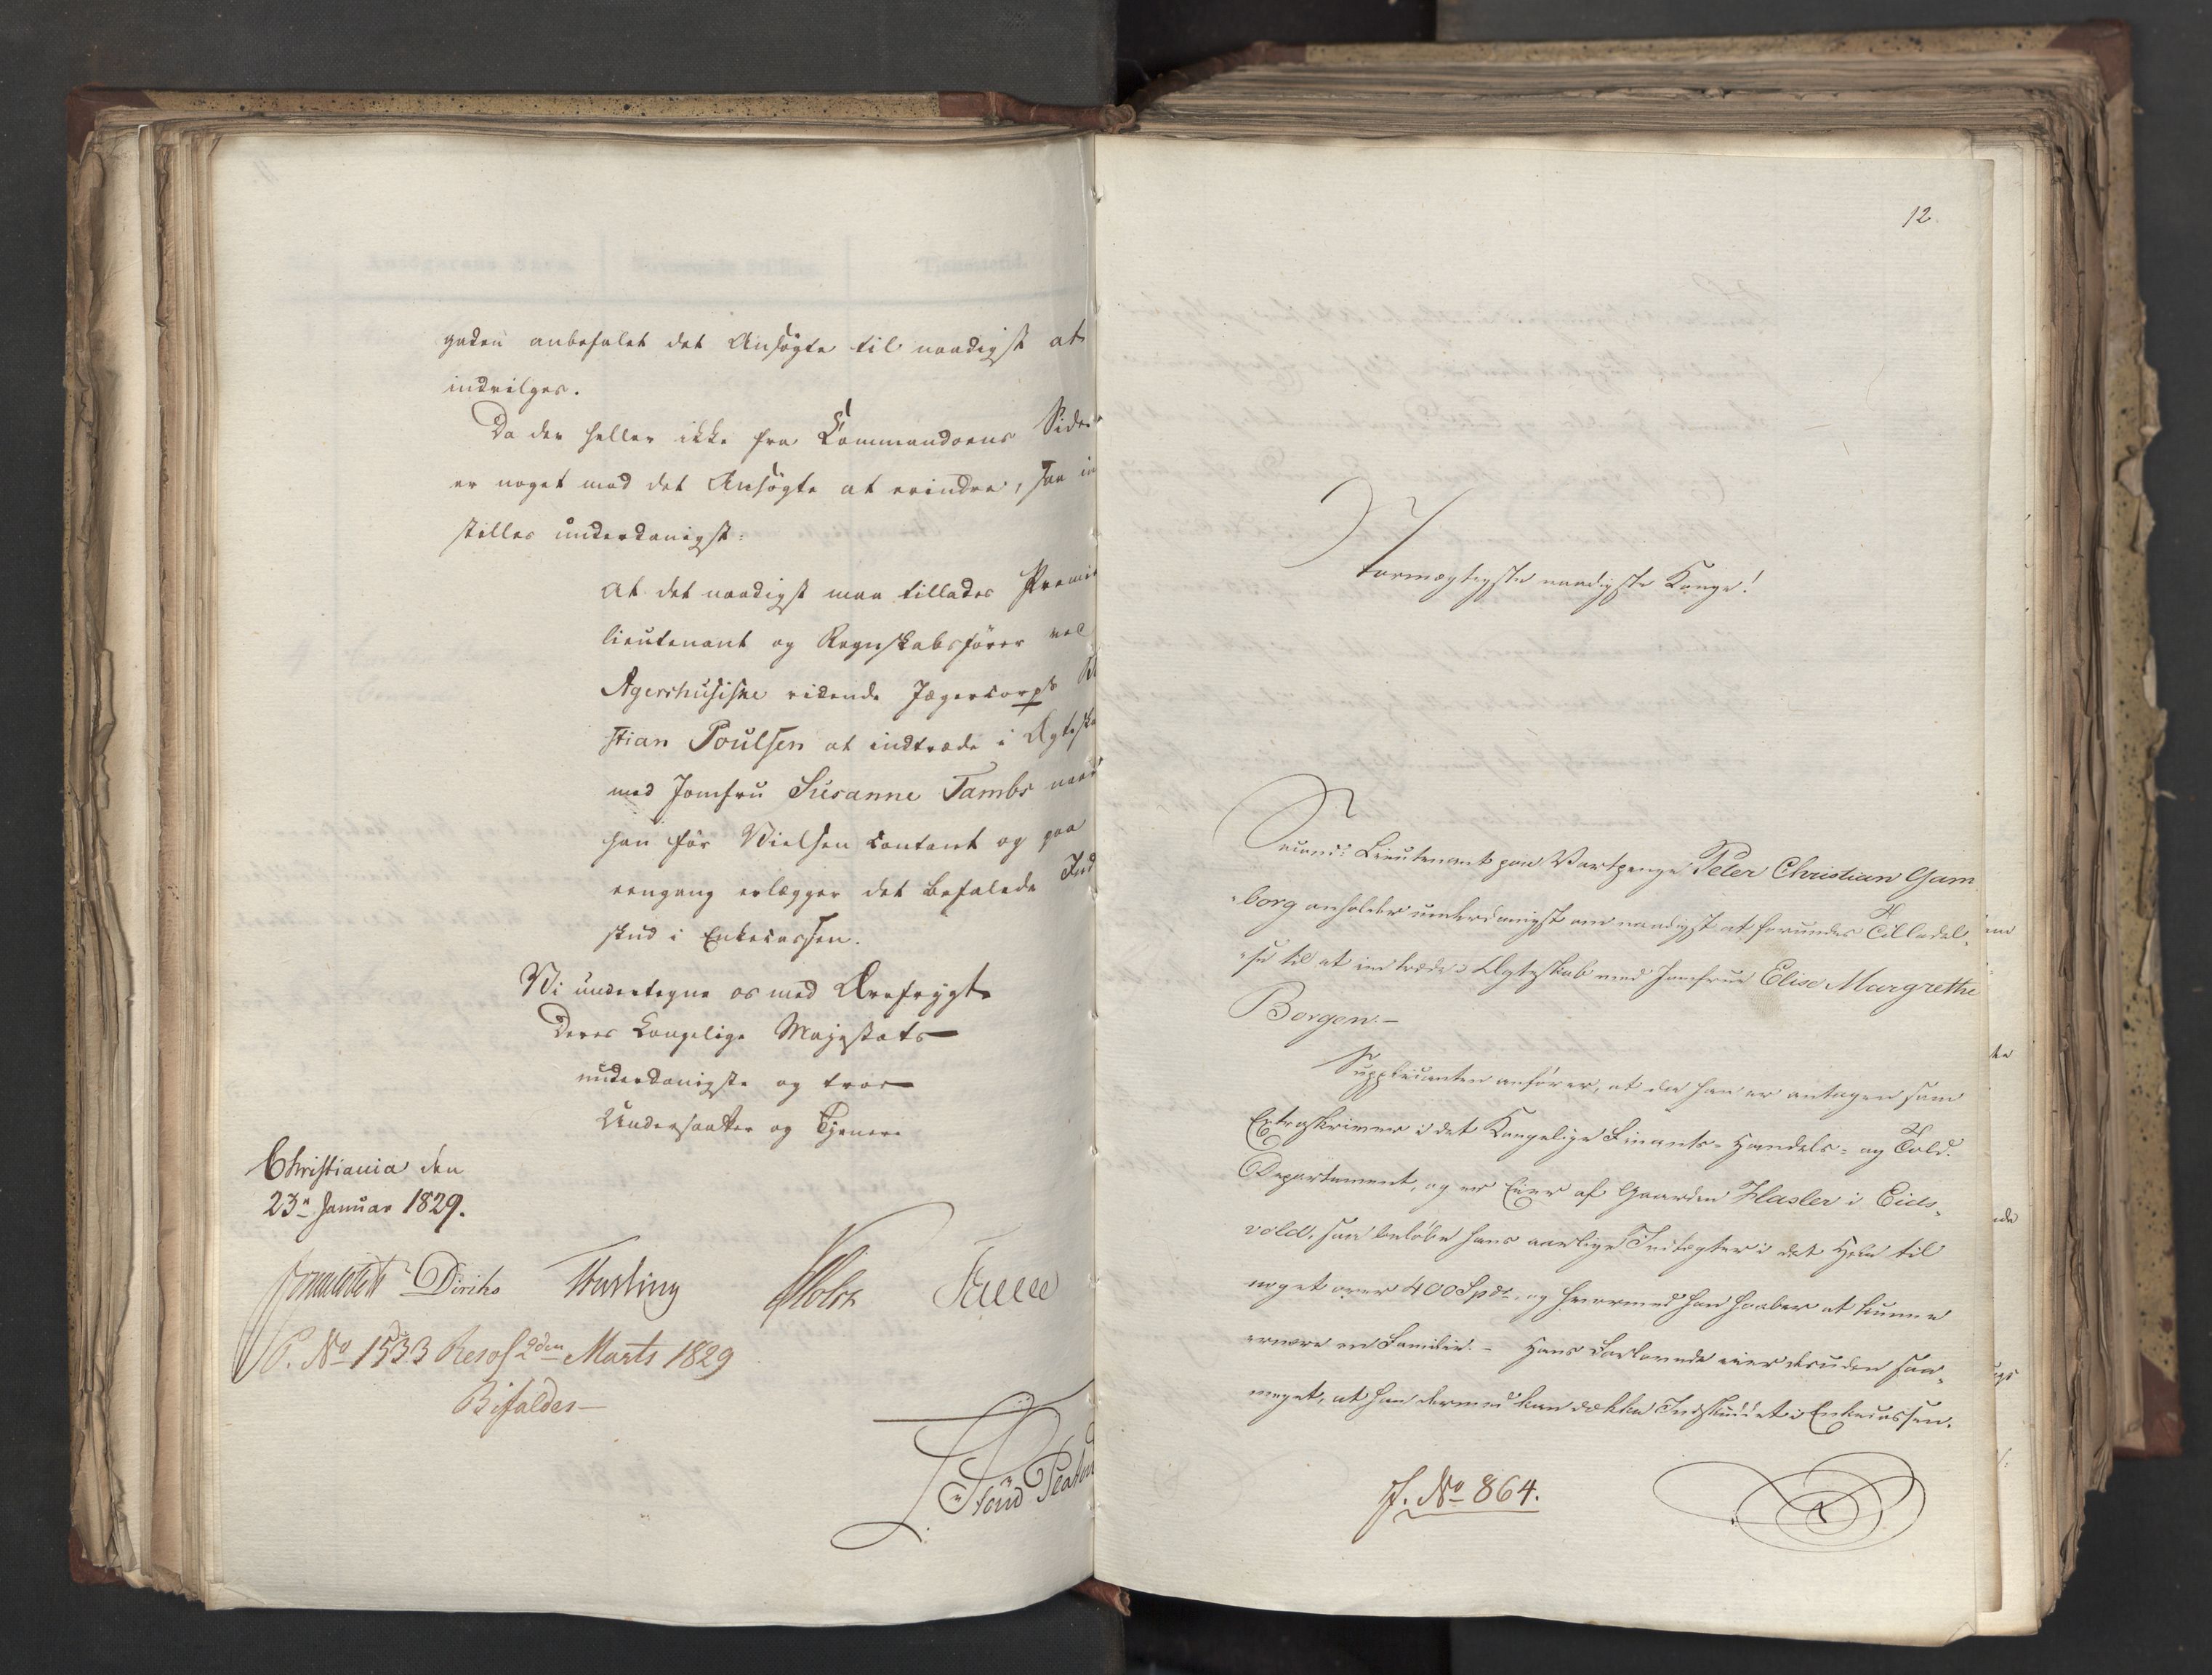 gaden anbefalet det Ansøgte til naadigst at
indvilges.
Da der heller ikke fra Commandoens Side
er noget mod det Ansøgte at erindre, saa in
stilles underdanigst:
At det naadigst maa tillades Premie
lieutenant og Regnskabsfører ved
Agershusiske ridende Jægercorps
stian Poulsen at indtræde i Ægteska
med Jomfru Susanne Tambs naar
han før Vielsen contant og paa
eengang erlægger det befalede Ind
skud i Enkecassen.
Vi undertegne os med Ærefrygt
Deres Kongelige Majestæts
underdanigste og troe
Undersaatter og Tjenere
Christiania den
23de Januar 1829.
Diriks Holst Fasting
P. No 1533 Resol 2den Marts 1829
Bifaldes
12.
Stormægtigste naadigste Konge!
Second-Lieutenant paa Vartpenge Peter Christian Gam
borg anholder underdanigst om naadigst at forundes Tilladel-
se til at indtræde i Ægteskab med Jomfrue Elise Margrethe
Borgen.-
Supplicanten anfører, at da han er antagen som
Extraskriver i det Kongelige Finants- Handels- og Told-
Departement, og er Eier af Gaarden Hasler i Eids-
vold, saa beløbe hans aarlige Indtægter i det Hele til
noget over 400 Spdr., og hvormed han haaber at kunne
ernære en Familie.- Hans Forlovede eier desuden saa-
meget, at han dermed kan dække Indskuddet i Enkecassen.
J. No 864.